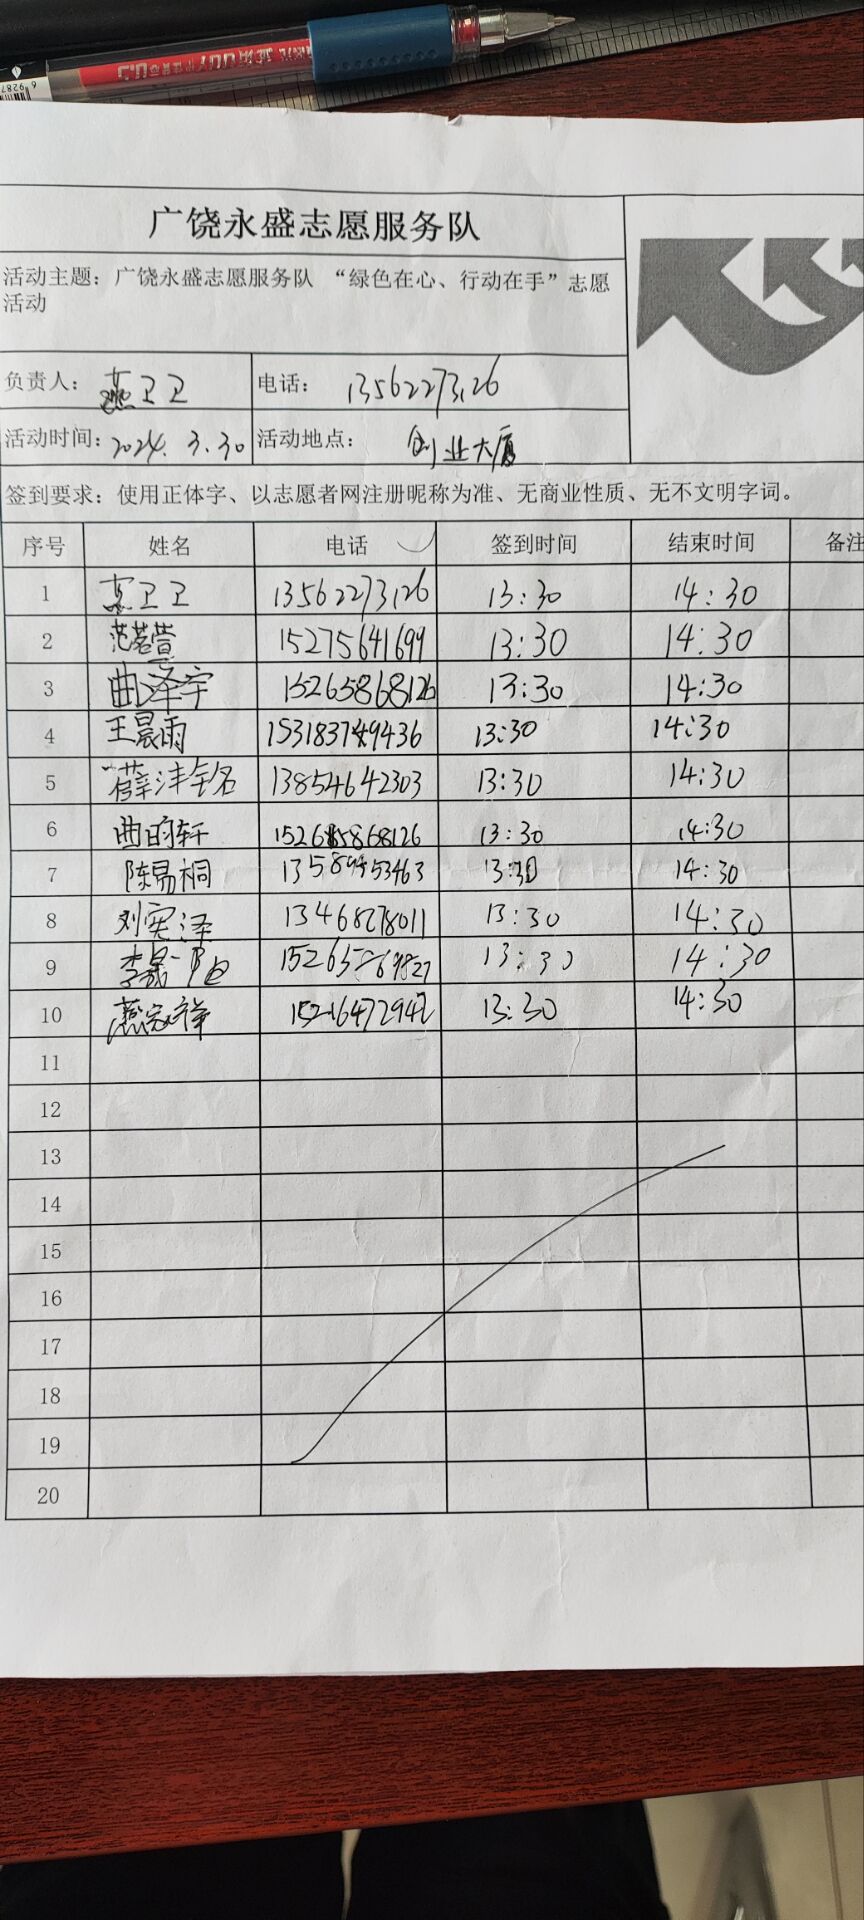 广饶永盛志愿服务队
活动主题：广饶永盛志愿服务队 “绿色在心、行动在手”志愿
活动
负责人：燕卫卫 电话：13562273126
活动时间：2024.3.30 活动地点：创业大厦
签到要求：使用正体字、以志愿者网注册昵称为准、无商业性质、无不文明字词。
序号 姓名 电话 签到时间 结束时间 备注
1 燕卫卫 13562273126 13:30 14:30
2 范茗萱 15275641699 13:30 14:30
3 曲泽宇 15265868126 13:30 14:30
4 王晨雨 13:30 14:30
5 薛沣铭 13854642303 13:30 14:30
6 曲昀轩 15265868126 13:30 14:30
7 陈易桐 13:30 14:30
8 刘宪泽 13468278011 13:30 14:30
9 13:30 14:30
10 燕家祥 15216472942 13:30 14:30
11
12
13
14
15
16
17
18
19
20